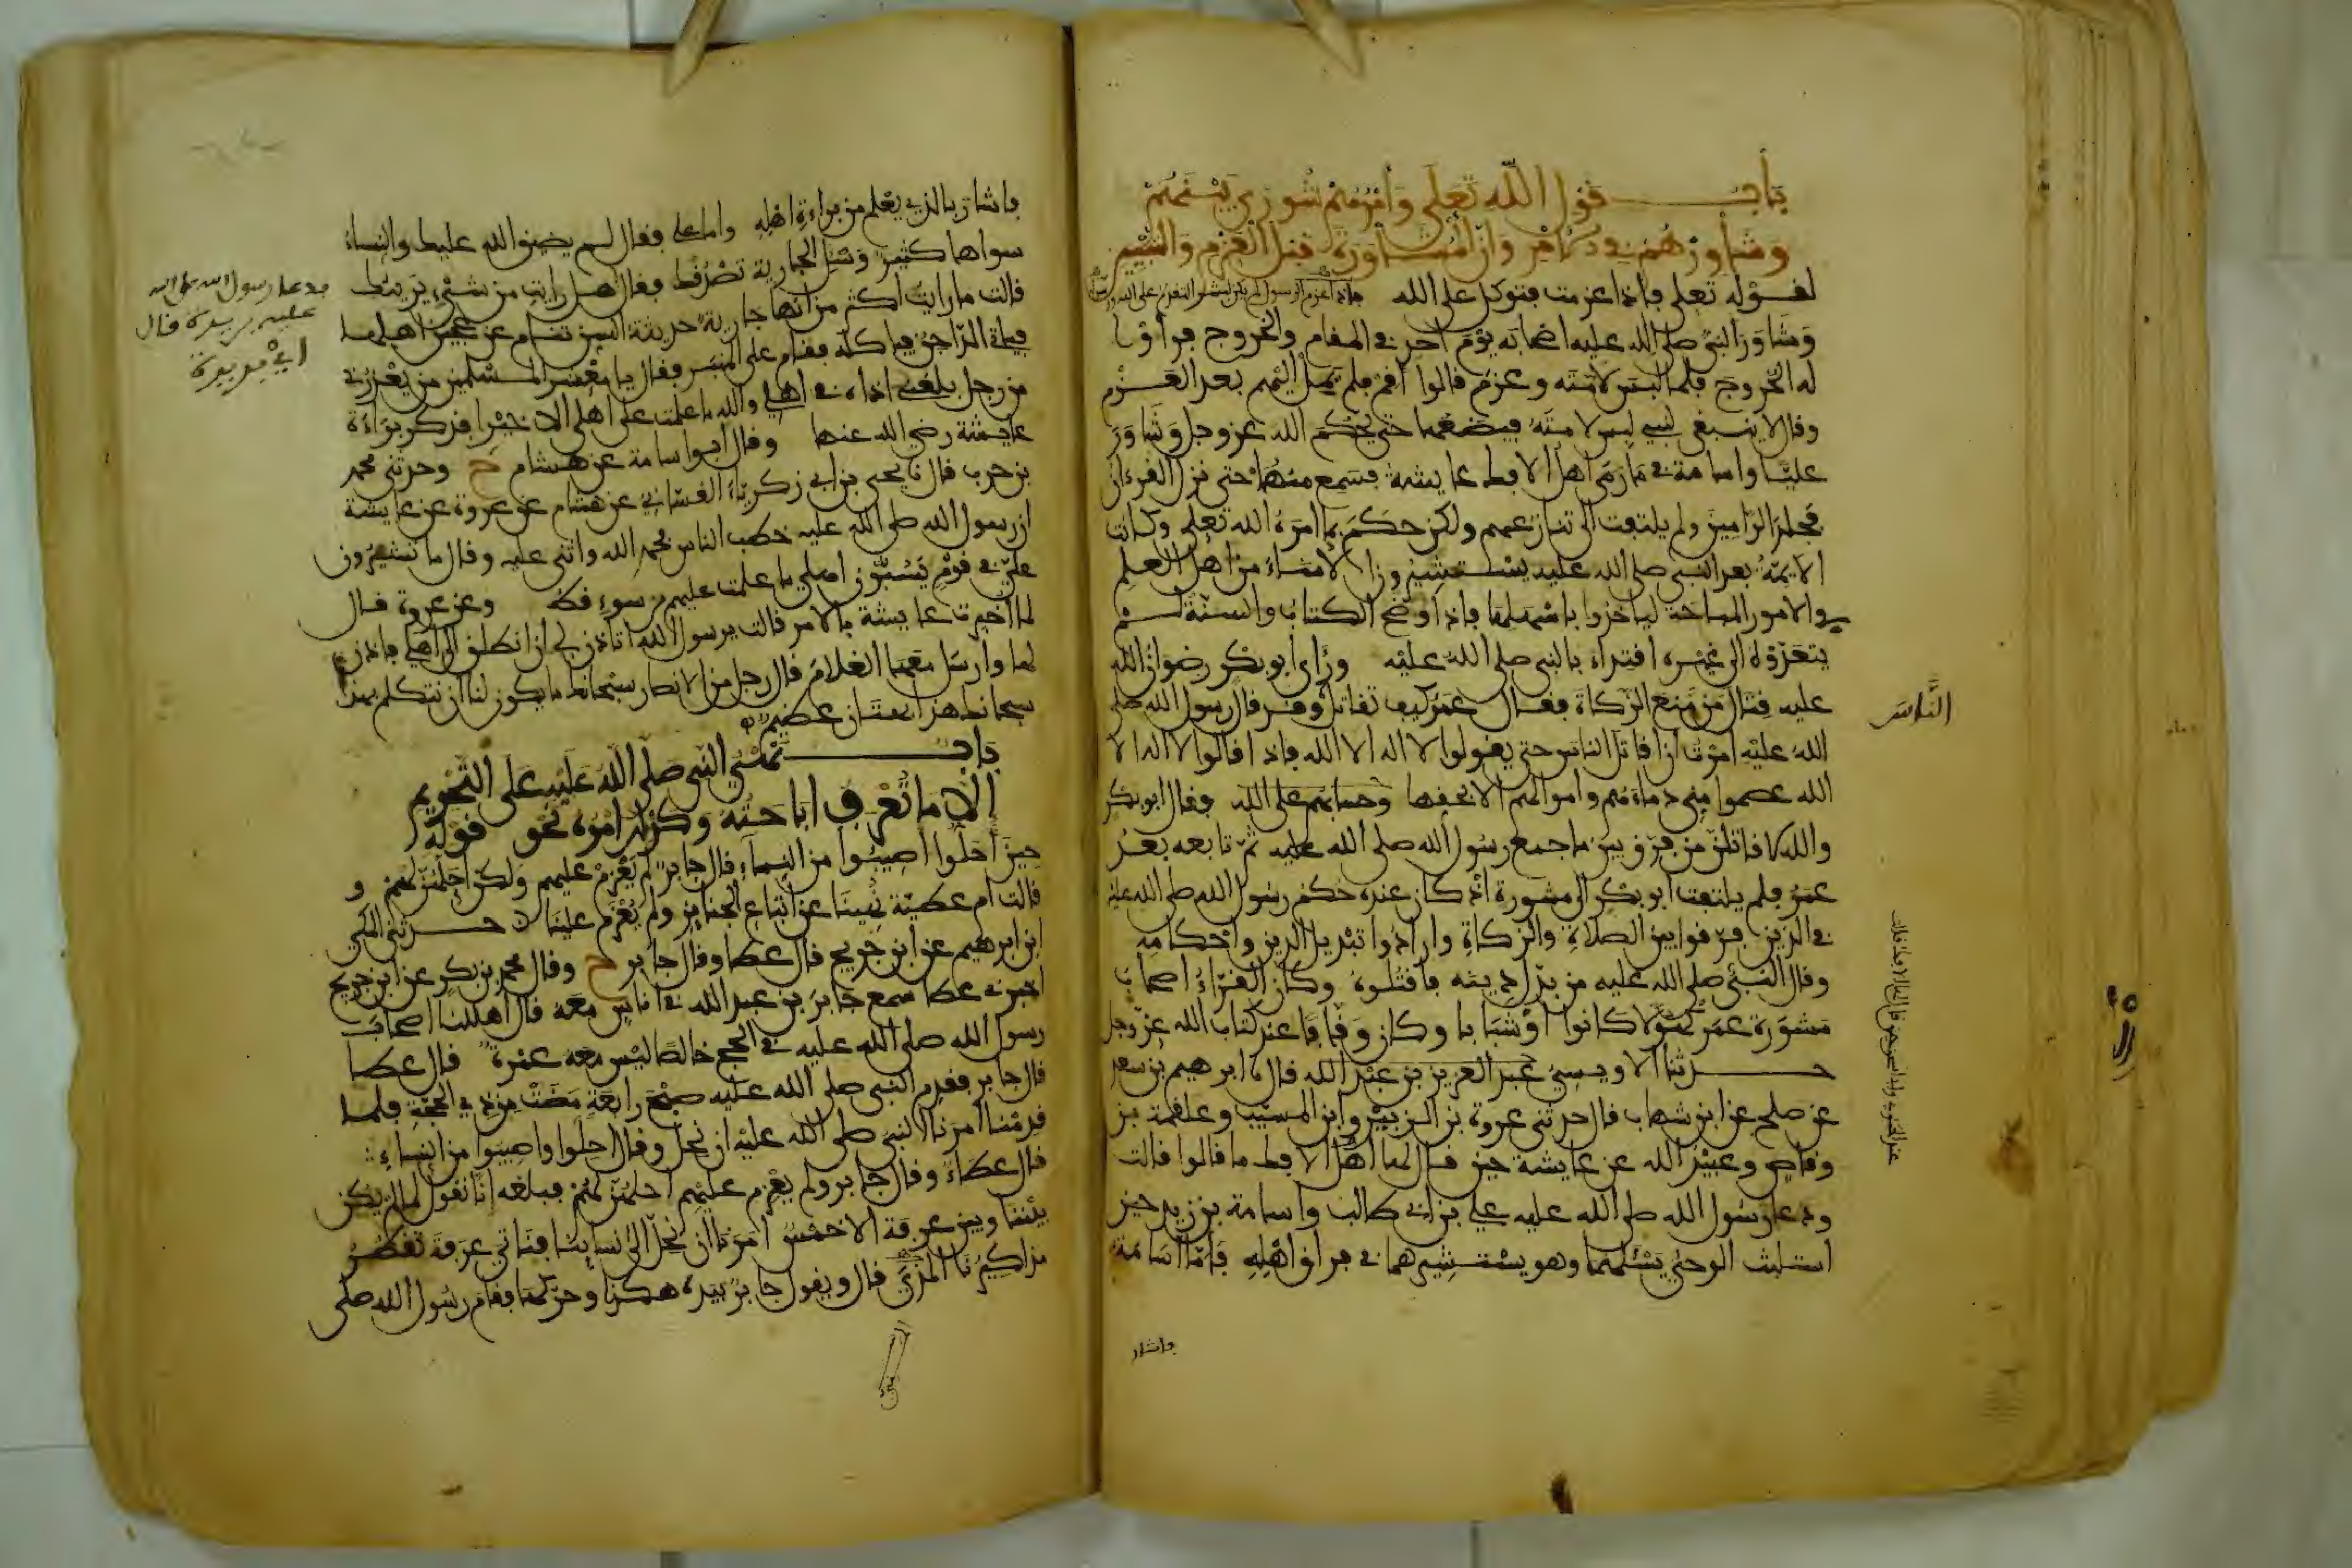 باب قول الله تعلى وأمرهم شورى بينهم
وشاورهم في الامر وان المشاورة قبل العزم والتبيين
لقوله تعلى فإذا عزمت فتوكل على الله فإذا عزم الرسول لم يكن لبشر التقدم على الله ورسوله
وشاور النبي صلى الله عليه اصحابه يوم احد في المقام والخروج فرأوا
له الخروج فلما لبس لامته وعزم قالوا أقم فلم يمل إليهم بعد العزم
وقال لا ينبغي لنبي لبس لامته فيضعها حتى يحكم الله عز وجل وشاور
عليا واسامة في ما رمى اهل الافك عايشة فسمع منهما حتى نزل القرءان
فجلد الرامين ولم يلتفت الى تنازعهم ولكن حكم بما امره الله تعلى وكانت
الايمة بعد النبي صلى الله عليه يستشيرون الامناء من اهل العلم
في الامور المباحة لياخذوا باسهلها فاذا وضح الكتاب والسنة لم
يتعدوه الى غيره اقتداء بالنبي صلى الله عليه ورأى ابو بكر رضوان الله
عليه قتال من منع الزكاة فقال عمر كيف تقاتل وقد قال رسول الله صلى
الناس
الله عليه امرت ان اقاتل الناس حتى يقولوا لا اله الا الله فاذا قالوا لا اله الا
الله عصموا مني دماءهم واموالهم الا بحقها وحسابهم على الله فقال ابو بكر
والله لاقاتلن من فرق بين ما جمع رسول الله صلى الله عليه ثم تابعه بعد
عمر فلم يلتفت ابو بكر الى مشورة اذ كان عنده حكم رسول الله صلى الله عليه
في الذين فرقوا بين الصلاة والزكاة وارادوا تبديل الدين واحكامه
وقال النبي صلى الله عليه من بدل دينه فاقتلوه وكان القراء اصحاب
مشورة عمر كهولا كانوا او شبابا وكان وقافا عند كتاب الله عز وجل
حدثنا الاويسي عبد العزيز بن عبد الله قال نا ابرهيم بن سعد
عن صلح عن ابن شهاب قال حدثني عروة بن الزبير وابن المسيب وعلقمة بن
وقاص وعبيد الله عن عايشة حين قال لها اهل الافك ما قالوا قالت
ودعا رسول الله صلى الله عليه علي بن ابي طالب واسامة بن زيد حين
استلبث الوحي يسئلهما وهو يستشيرهما في فراق اهله فاما اسامة
فاشار
فاشار بالذي يعلم من براءة اهله واما علي فقال لم يضيق الله عليك والنساء
سواها كثير وسل الجارية تصدقك فقال هل رايت من شيء يريبك
فدعا رسول الله صلى الله
عليه بريرة فقال
اي بريرة
قالت ما رايت اكثر من انها جارية حديثة السن تنام عن عجين اهلها
فياتي الداجن فياكله فقام على المنبر فقال يا معشر المسلمين من يعذرني
من رجل بلغني اذاه في اهلي والله ما علمت على اهلي الا خيرا فذكر براءة
عايشة رضي الله عنها وقال ابو اسامة عن هشام ح وحدثني محمد
بن حرب قال نا يحيى بن ابي زكرياء الغساني عن هشام عن عروة عن عايشة
ان رسول الله صلى الله عليه خطب الناس فحمد الله واثنى عليه وقال ما تشيرون
علي في قوم يسبون اهلي ما علمت عليهم من سوء قط وعن عروة قال
لما اخبرت عايشة بالامر قالت يرسول الله اتاذن لي ان انطلق الى اهلي فاذن
لها وارسل معها الغلام قال رجل من الانصار سبحانك ما يكون لنا ان نتكلم بهذا
سبحانك هذا بهتان عظيم
باب نهي النبي صلى الله عليه على التحريم
الا ما تعرف اباحته وكذلك امره نحو قوله
حين أحلوا أصيبوا من النساء قال جابر لم يعزم عليهم ولكن احلهن لهم و
قالت ام عطية نهينا عن اتباع الجنايز ولم يعزم علينا حدثني المكي
ابن ابرهيم عن ابن جريج قال عطا وقال جابر ح وقال محمد بن بكر عن ابن جريج
اخبرني عطا سمع جابر بن عبد الله في اناس معه قال اهللنا اصحاب
رسول الله صلى الله عليه في الحج خالصا ليس معه عمرة قال عطا
قال جابر فقدم النبي صلى الله عليه صبح رابعة مضت من ذي الحجة فلما
قدمنا امرنا النبي صلى الله عليه ان نحل وقال احلوا واصيبوا من النساء
قال عطاء وقال جابر ولم يعزم عليهم احلهن لهم فبلغه انا نقول لما لم يكن
بيننا وبين عرفة الا خمس امرنا ان نحل الى نساينا فناتي عرفة تقطر
مذاكيرنا المذي قال ويقول جابر بيده هكذا وحركها فقام رسول الله صلى